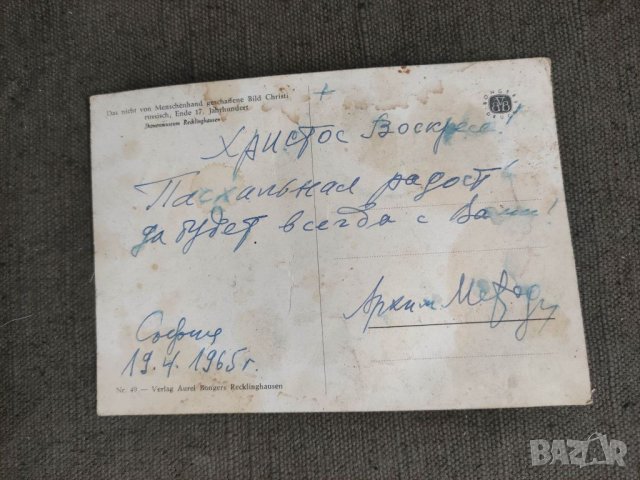 Das nicht von Menschenhand geschaffene Bild Christi
russisch, Ende 17. Jahrhundert
Ikonenmuseum Recklinghausen
BONGERS
+
Христос Воскресе!
Пасхальная радост
да будет всегда с Вами!
Архим
София
19.4.1965 г.
Nr. 49 — Verlag Aurel Bongers Recklinghausen
BAZAR